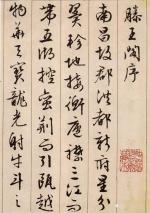 滕王閣序
南昌故郡洪都新府星分
翼軫地接衡廬襟三江而
帶五湖控蠻荊而引甌越
物華天寶龍光射牛斗之